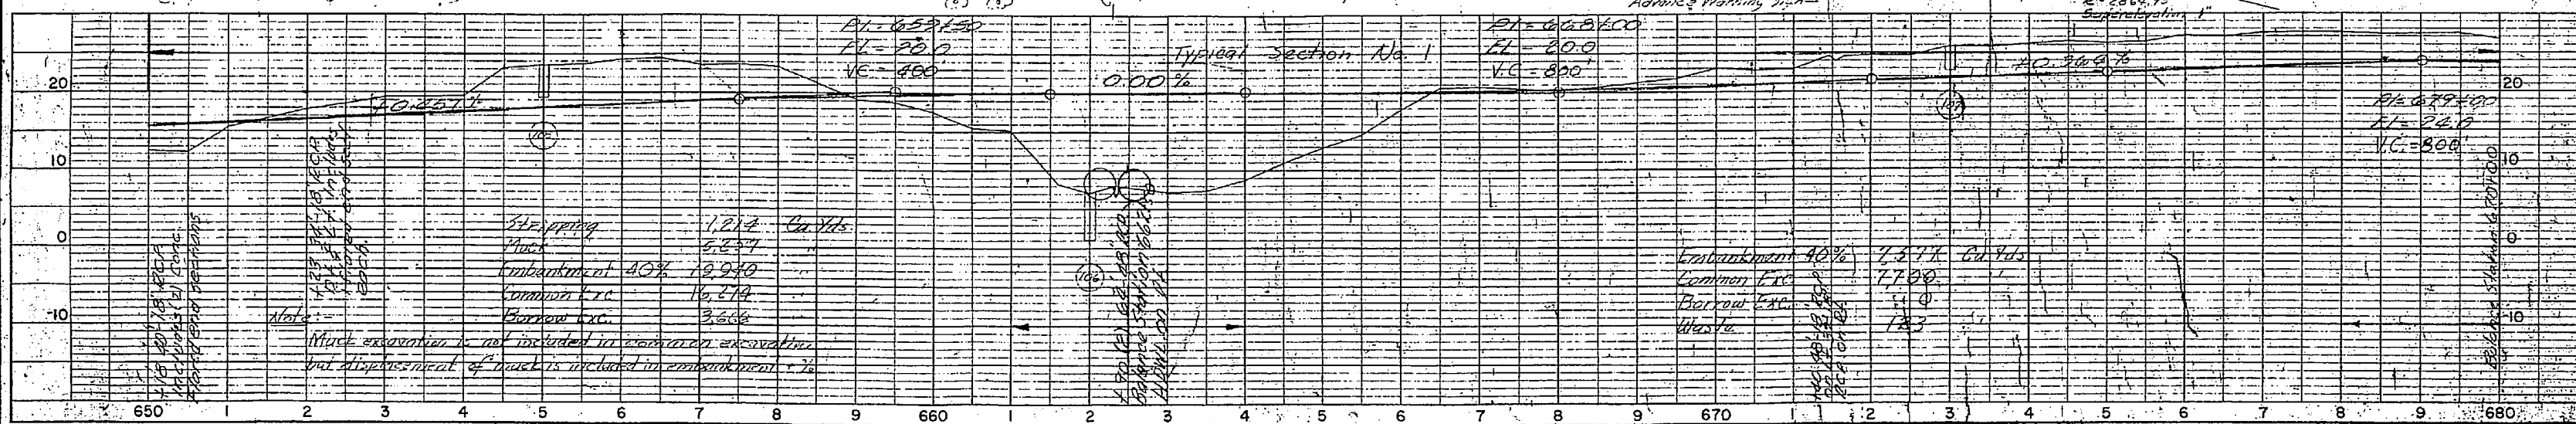 Advance Warning Sign
Superelevation 1"
PI = 659+50
EL = 20.0
VC = 400'
Typical Section No. 1
0.00 %
PI = 668+00
EL = 20.0
V.C = 800'
+0.364 %
PI = 679+00
EL = 24.0
V.C. = 800'
20
10
0
-10
20
10
0
-10
+0.457 %
105
106
107
+18 40'-18" RCP
Includes (2) Conc.
Flared end sections
each.
Stripping 1,214 Cu Yds
Muck 5,257
Embankment 40% 19,940
Common Exc. 16,274
Borrow Exc. 3,666
Note:-
Muck excavation is not included in common excavation
but displacement of muck is included in embankment
Embankment 40% 7,577 Cu Yds
Common Exc. 7,700
Borrow Exc. 0
Waste 123
Balance Station 680+00
650 1 2 3 4 5 6 7 8 9 660 1 2 3 4 5 6 7 8 9 670 1 2 3 4 5 6 7 8 9 680